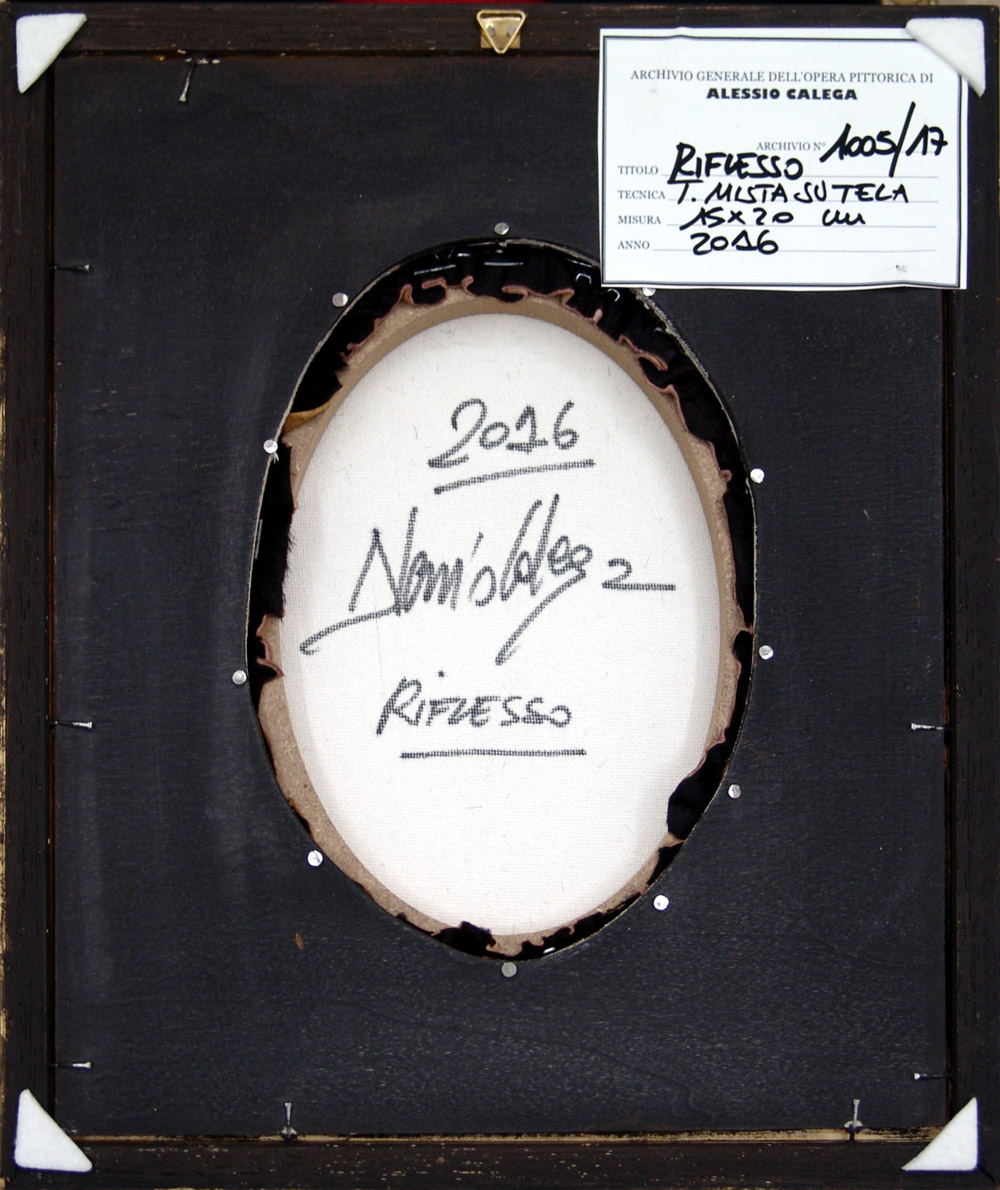 ARCHIVIO GENERALE DELL'OPERA PITTORICA DI
ALESSIO CALEGA
ARCHIVIO N° 1005/17
TITOLO RIFLESSO
TECNICA T. MISTA SU TELA
MISURA 15x20 cm
ANNO 2016
2016
RIFLESSO